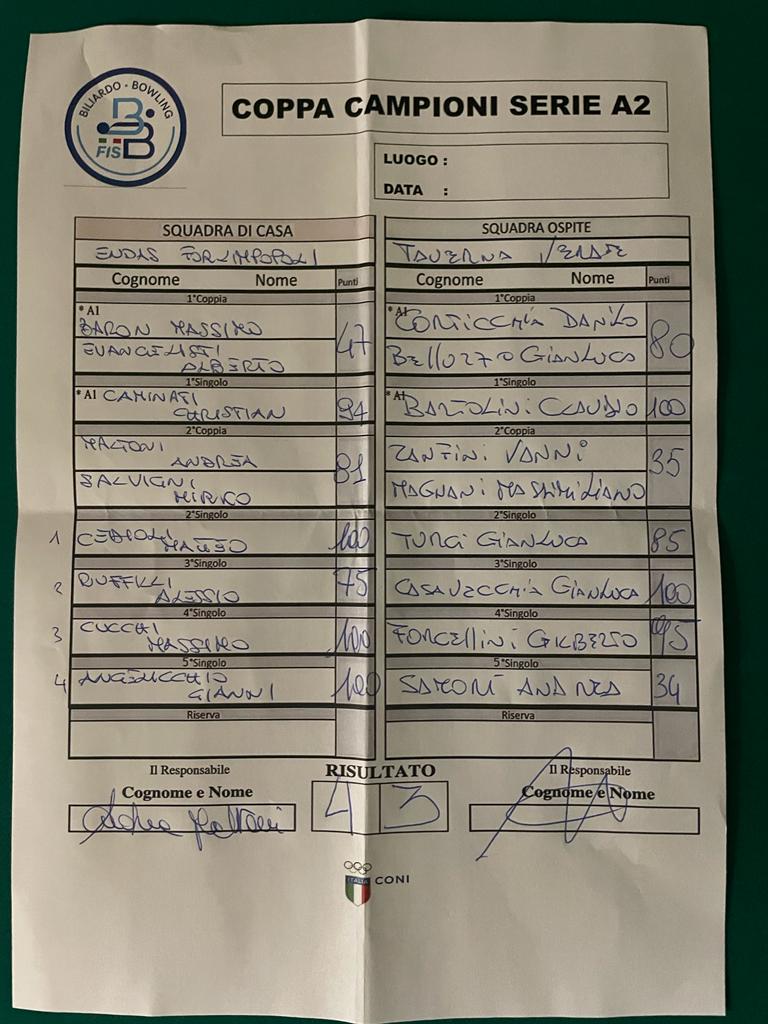 BILIARDO - BOWLING
FISBB
COPPA CAMPIONI SERIE A2
LUOGO :
DATA :
SQUADRA DI CASA
SQUADRA OSPITE
ENDAS FORLIMPOPOLI
TAVERNA VERDE
Cognome Nome Punti
Cognome Nome Punti
1°Coppia
1°Coppia
* AI
* AI
BARON MASSIMO
CORTICCHIA DANILO
47
80
EVANGELISTI ALBERTO
BELLUZZO GIANLUCA
1°Singolo
1°Singolo
* AI CAMINATI CHRISTIAN 94
* AI BARTOLINI CLAUDIO 100
2°Coppia
2°Coppia
MALTONI ANDREA
ZANFINI VANNI
81
35
SALVIGNI MIRKO
MAGNANI MASSIMILIANO
2°Singolo
2°Singolo
1 CEDIOLI MATTEO 100
TURCI GIANLUCA 85
3°Singolo
3°Singolo
2 RUFFILLI ALESSIO 75
CASAVECCHIA GIANLUCA 100
4°Singolo
4°Singolo
3 CUCCHI MASSIMO 100
FORCELLINI GILBERTO 95
5°Singolo
5°Singolo
4 ANGELICCHIO GIANNI 100
ANDREA 34
Riserva
Riserva
Il Responsabile
RISULTATO
Il Responsabile
Cognome e Nome
Cognome e Nome
4 3
ITALIA
CONI